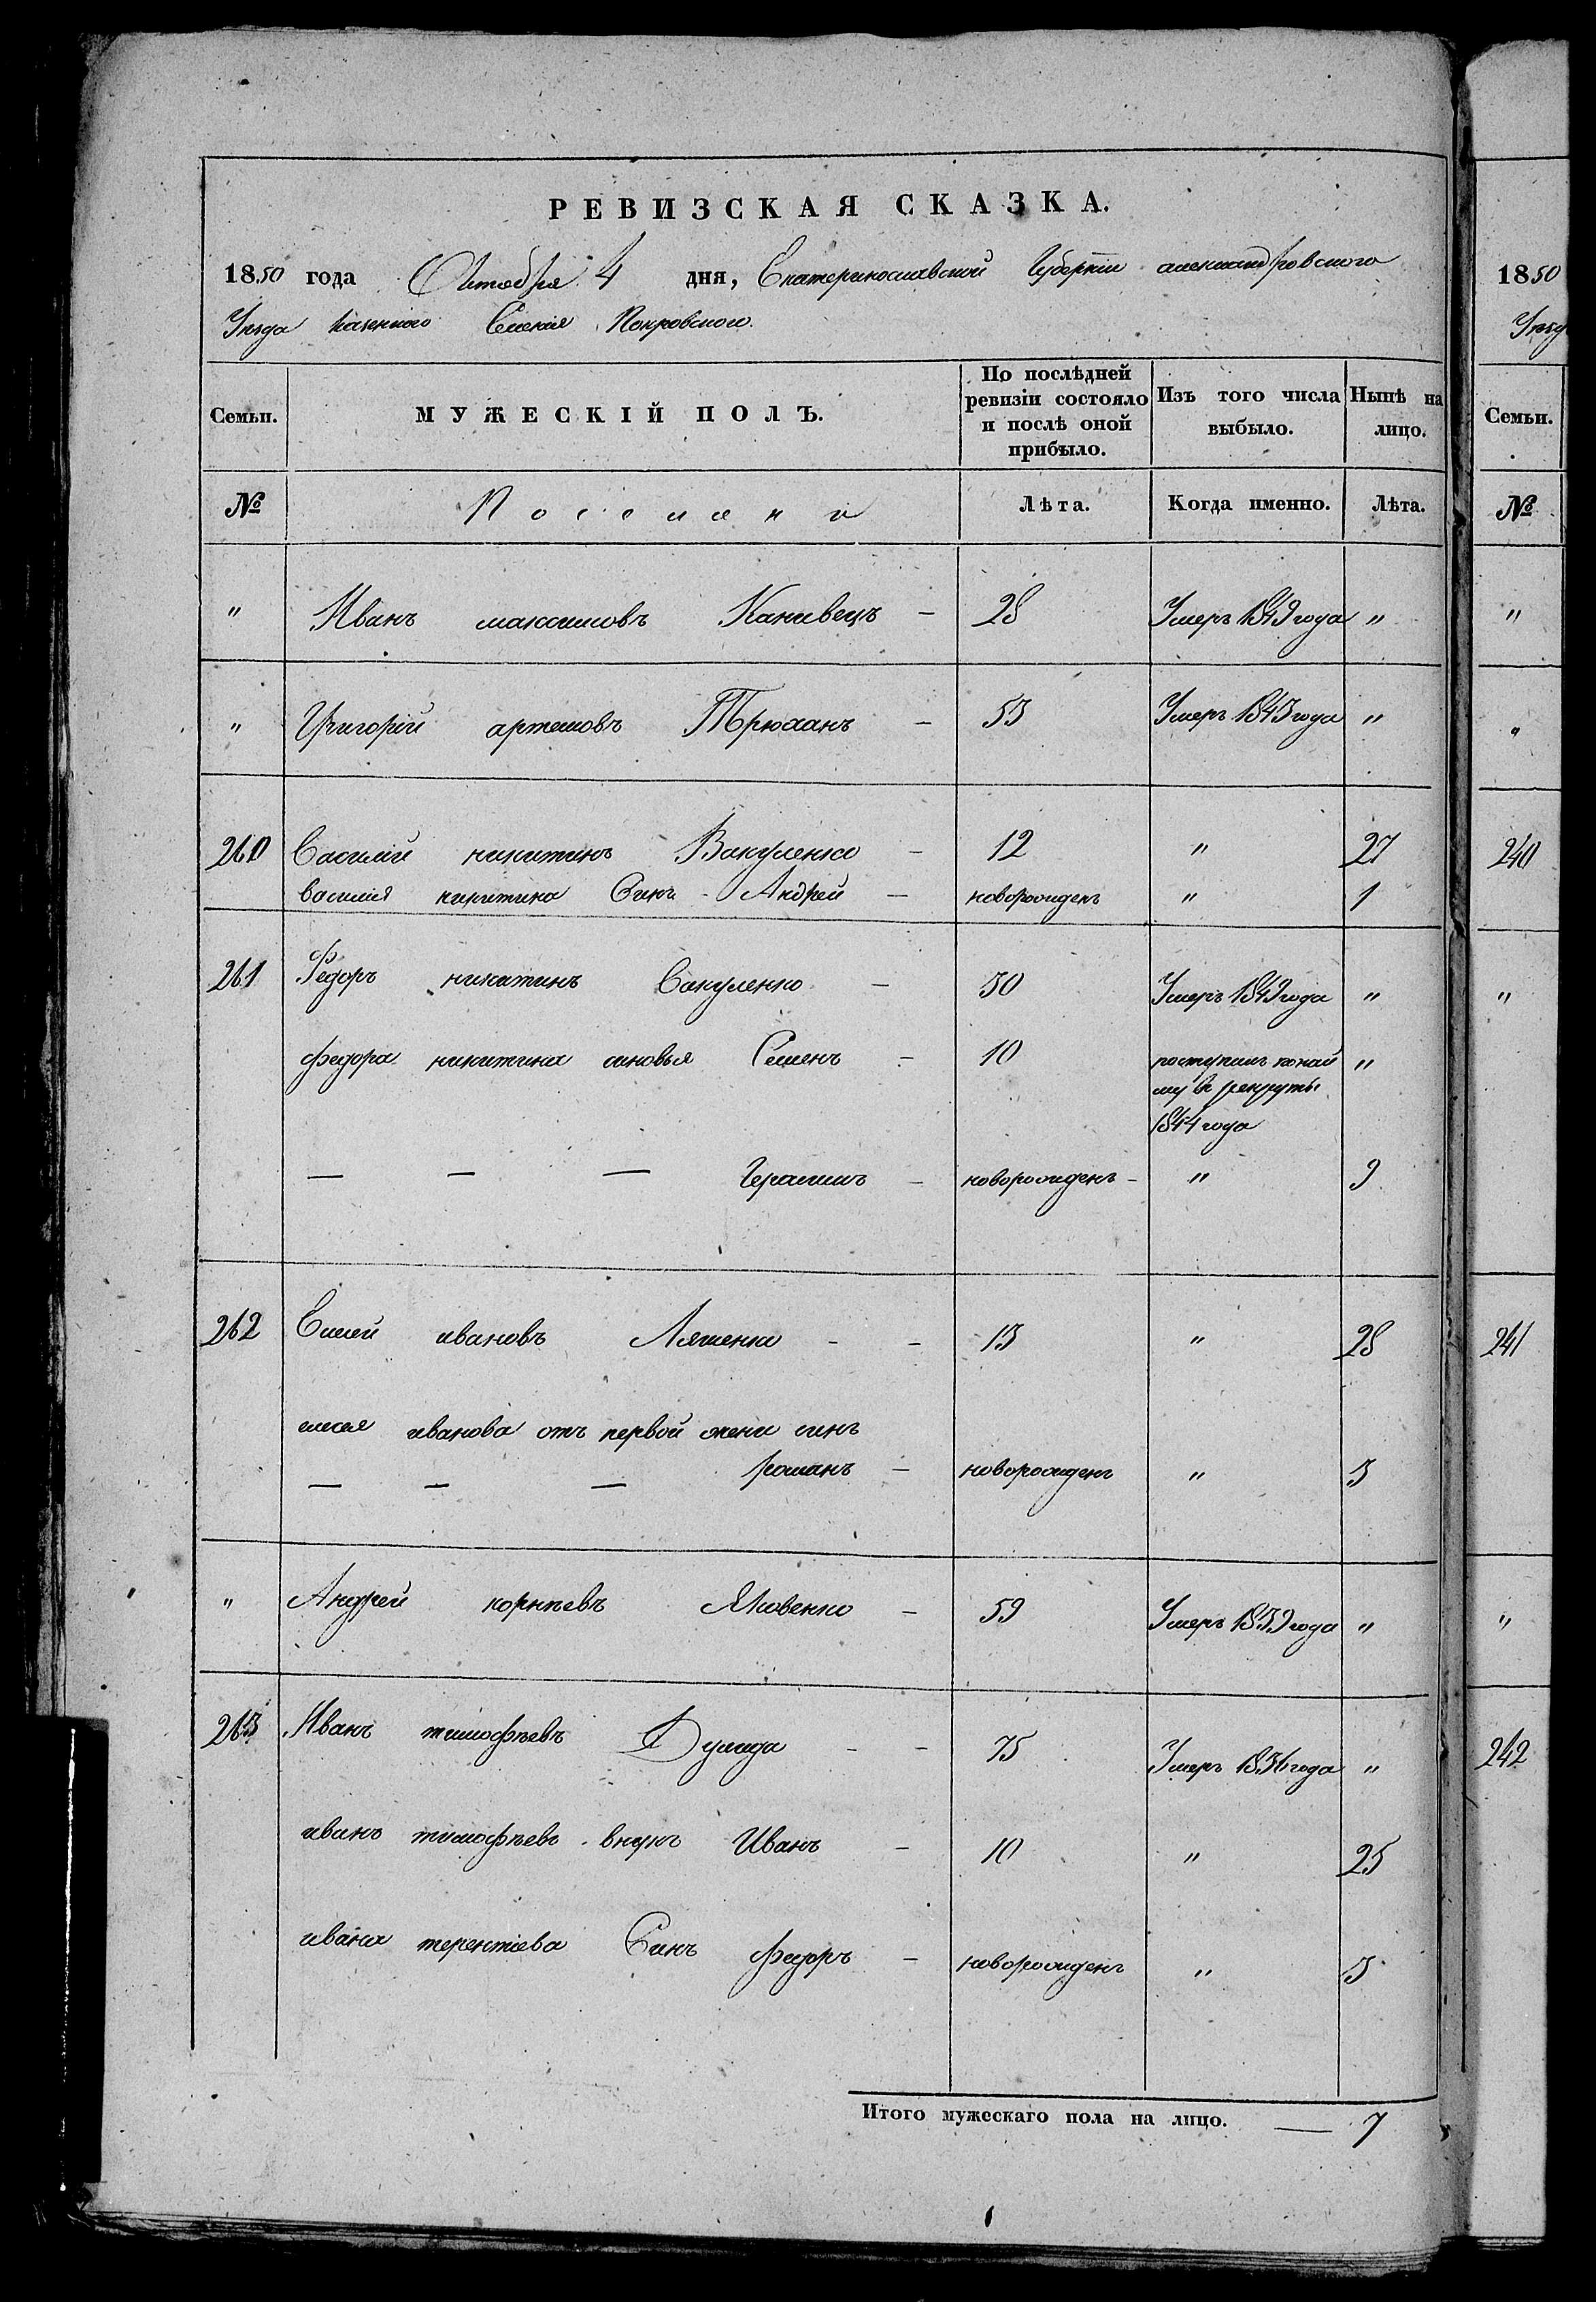 РЕВИЗСКАЯ СКАЗКА.
1850 года Октября 4 дня, Екатеринославской Губернiи александровского
Уезда казенного Селенiя Покровского.
Семьи. МУЖЕСКІЙ ПОЛЪ. По послѣдней ревизіи состояло и послѣ оной прибыло. Изъ того числа выбыло. Нынѣ на лицо.
№ Поселяне Лѣта. Когда именно. Лѣта.
" Иванъ максимовъ Канивецъ - 28 Умеръ 1849 года "
" Григорій артемовъ Трюханъ - 53 Умеръ 1843 года "
260 Василий никитинъ Вакуленко - 12 " 27
василия никитина Синъ - Андрей - новорожденъ " 1
261 Федоръ никитинъ Вакуленко - 30 Умеръ 1849 года "
федора никитина синовья Семенъ - 10 поступилъ понай
му въ рекруты
1844 года "
— — — Герасимъ - новорожденъ - " 9
262 Елисей ивановъ Ляшенко - - 13 " 28
елисея иванова отъ первой жени синъ
— — — романъ - новорожденъ " 3
" Андрей корнѣевъ Яковенко - 59 Умеръ 1839 года "
263 Иванъ тимофѣевъ Дулида - - 75 Умеръ 1836 года "
иванъ тимофѣевъ внукъ Иванъ - 10 " 25
ивана терентiева Синъ федоръ - новорожденъ " 3
Итого мужескаго пола на лицо. — 7
1850
Семьи.
№
"
"
240
"
241
"
242